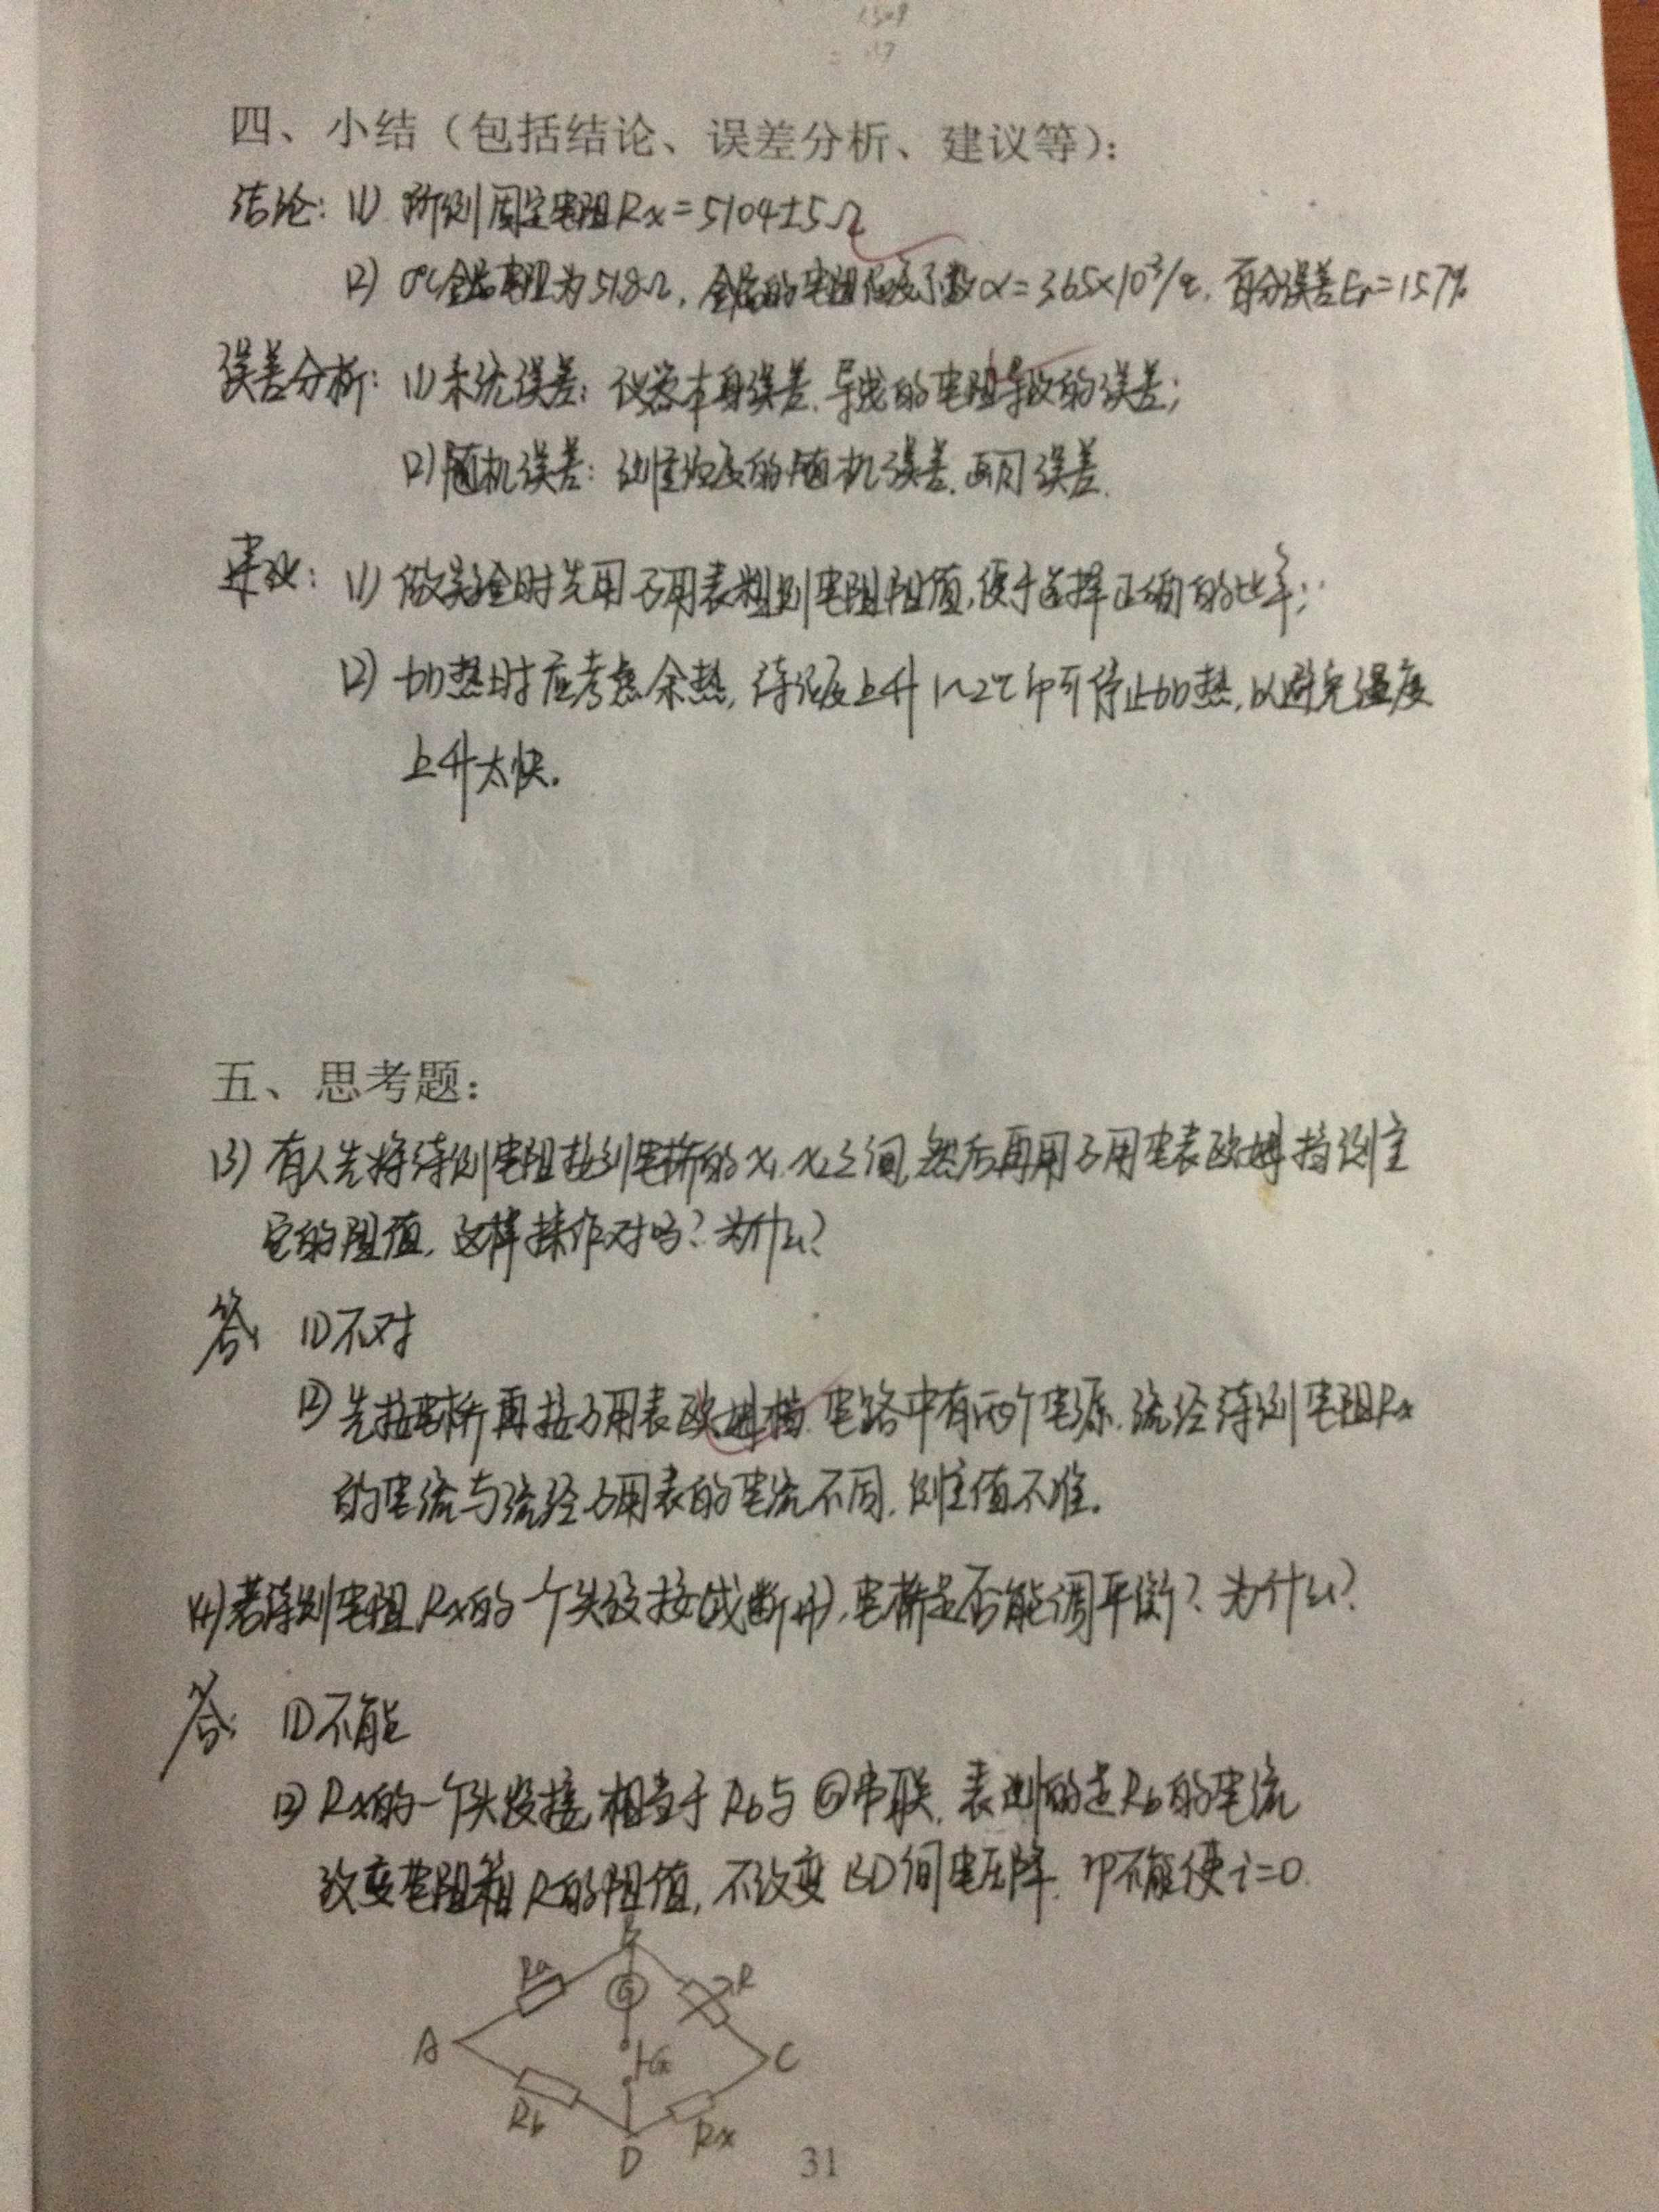 四、小结（包括结论、误差分析、建议等）：
结论：(1) 所测固定电阻Rx=5104±5Ω
(2) 0℃金属电阻为51.8Ω，金属的电阻温度系数α=3.65×10⁻³/℃，百分误差Er=15.7%
误差分析：(1)系统误差：仪器本身误差、导线的电阻导致的误差；
(2)随机误差：测量温度的随机误差、画图误差.
建议：(1) 做实验时先用万用表粗测电阻阻值，便于选择正确的比率；
(2) 加热时应考虑余热，待温度上升1~2℃即可停止加热，以避免温度
上升太快。
五、思考题：
(3) 有人先将待测电阻接到电桥的X₁、X₂之间，然后再用万用电表欧姆挡测定
它的阻值，这样操作对吗？为什么？
答: (1)不对
(2)先接电桥再接万用表欧姆档，电路中有两个电源，流经待测电阻Rx
的电流与流经万用表的电流不同，测定值不准。
(4)若待测电阻Rx的一个头没接(或断开)，电桥是否能调平衡？为什么？
答: (1)不能
(2) Rx的一个头没接，相当于Rb与G串联，表测的是Rb的电流
改变电阻箱R的阻值，不改变BD间电压降，即不能使i=0.
B
Ra
G
R
A
C
Rb
Rx
D
31